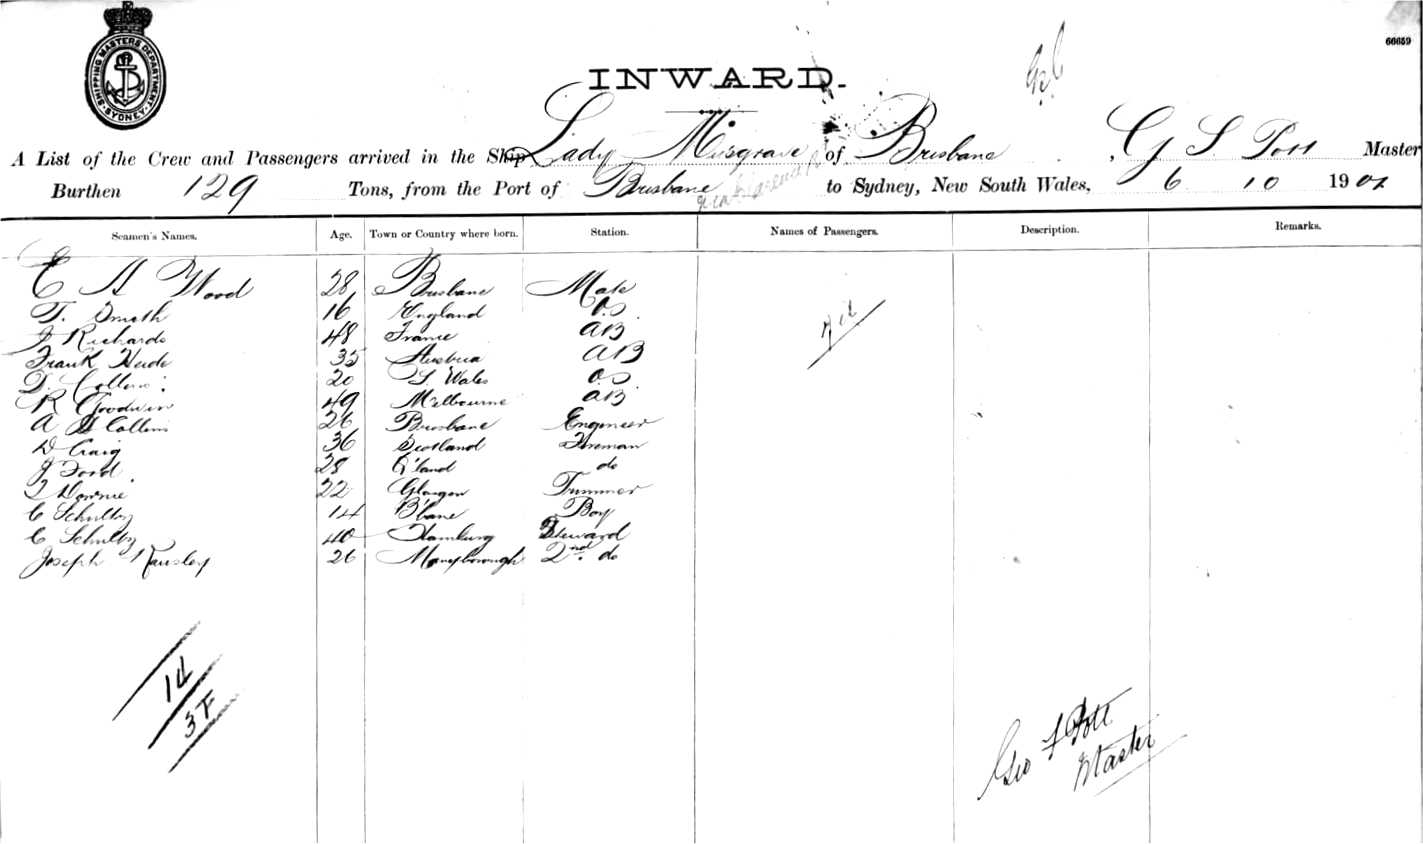 SHIPPING MASTERS DEPARTMENT
SYDNEY
66659
INWARD.
A List of the Crew and Passengers arrived in the Ship Lady Musgrave of Brisbane, G S Pott Master
Burthen 129 Tons, from the Port of Brisbane to Sydney, New South Wales, 6 10 190
Seamen's Names. Age. Town or Country where born. Station. Names of Passengers. Description. Remarks.
C A Wood 28 Brisbane Mate
T. Smith 16 England O.S
J Richards 48 France AB
Frank Heide 35 Austria AB
D. Collins 20 S Wales O.S
R Goodwin 49 Melbourne AB
A G Collins 26 Brisbane Engineer
D Craig 36 Scotland Fireman
J Ford 28 Q'land do
Downie 22 Glasgow Trimmer
C Schultz 14 B'bane Boy
C Schultz 40 Hamburg Steward
Joseph 26 Maryborough 2nd do
Nil
14
3 F
Geo S Pott
Master